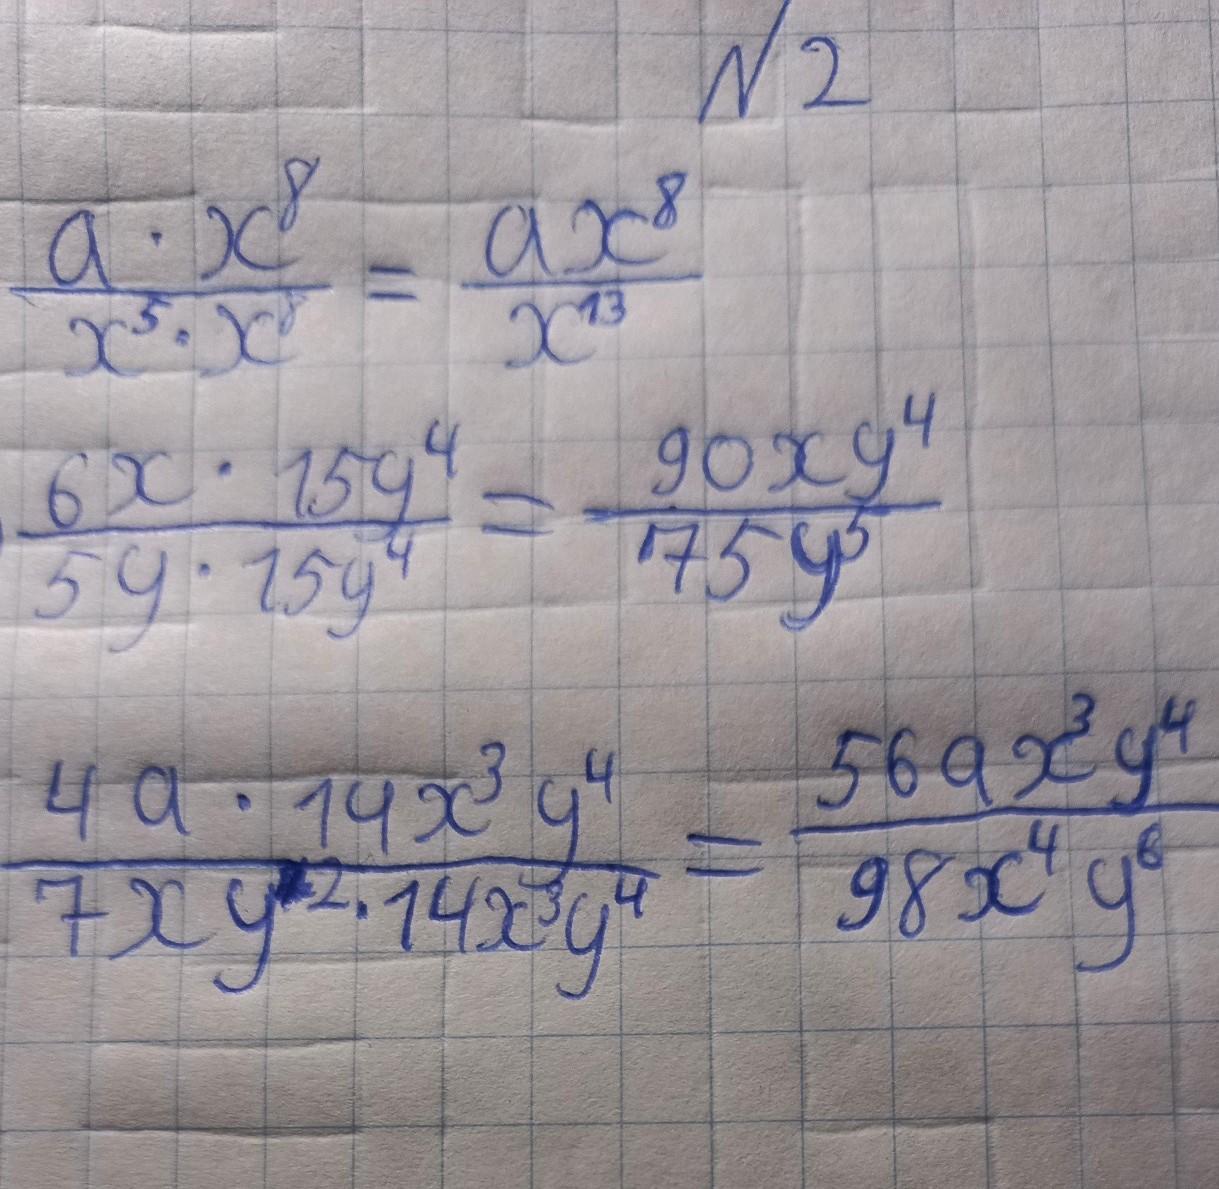 №2
a · x⁸ / x⁵ · x⁸ = ax⁸ / x¹³
6x · 15y⁴ / 5y · 15y⁴ = 90xy⁴ / 75y⁵
4a · 14x³y⁴ / 7xy² · 14x³y⁴ = 56ax³y⁴ / 98x⁴y⁶